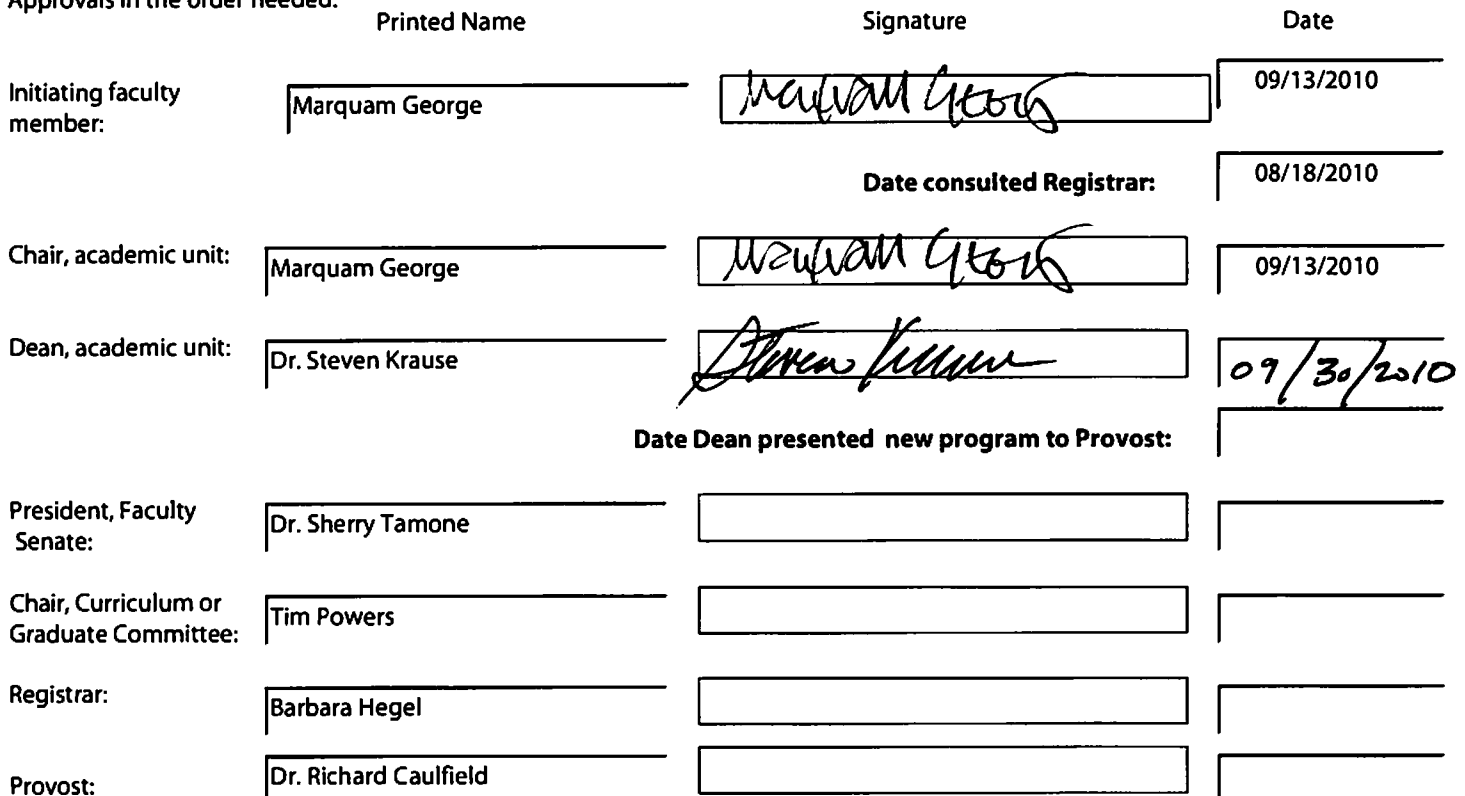 Approvals in the order needed:
Printed Name Signature Date
Initiating faculty member: Marquam George Marquam George 09/13/2010
Date consulted Registrar: 08/18/2010
Chair, academic unit: Marquam George Marquam George 09/13/2010
Dean, academic unit: Dr. Steven Krause Steven Krause 09/30/2010
Date Dean presented new program to Provost:
President, Faculty Senate: Dr. Sherry Tamone
Chair, Curriculum or Graduate Committee: Tim Powers
Registrar: Barbara Hegel
Provost: Dr. Richard Caulfield